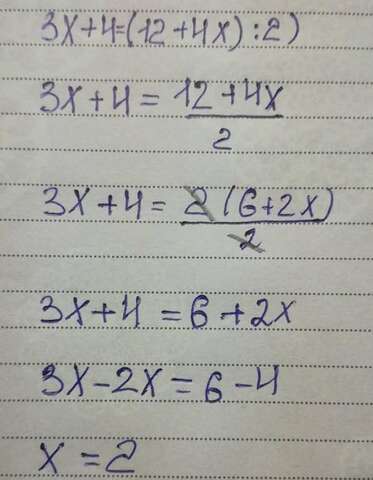 3x+4=(12+4x):2)
3x+4=12+4x
2
3x+4=2(6+2x)
2
3x+4=6+2x
3x-2x=6-4
x=2